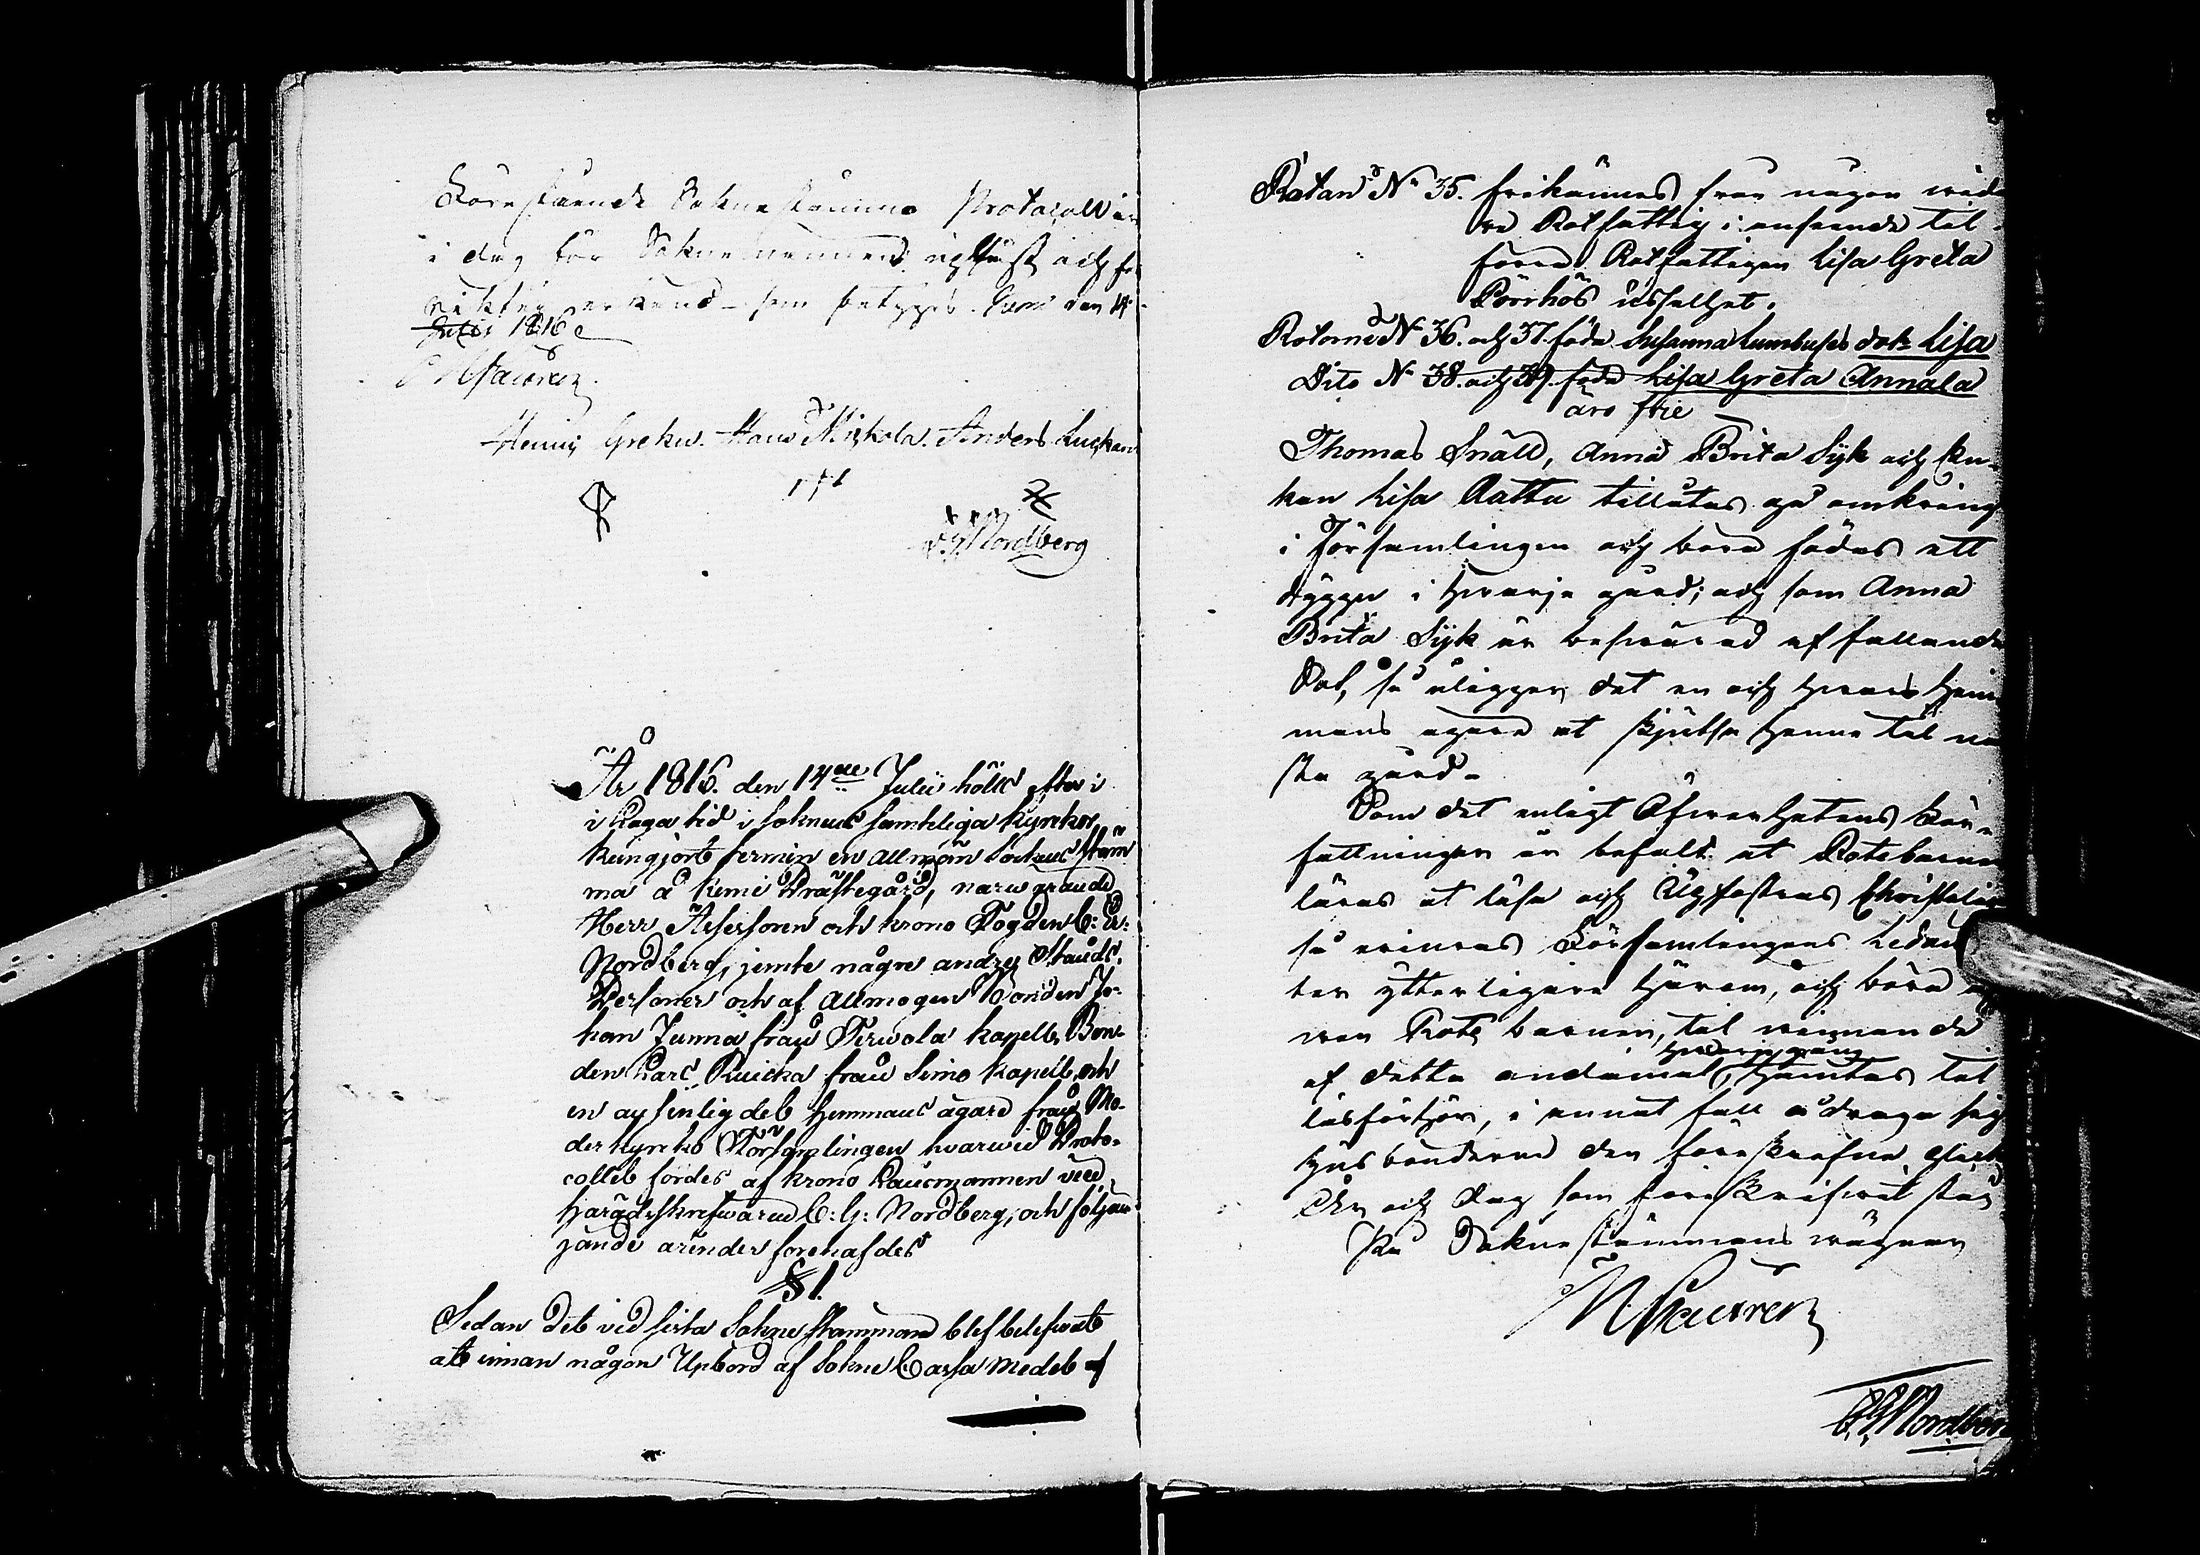 Förestående Sokne stämmo Protocoll är
i dag för Soknemennen upläst och för
riktig erkend som betygas. Kemi den 14
Julii 1816
Henric Hans Niskala. Anders
C. G. Nordberg
År 1816. den 14de Julii hölts efter i
i Laga tid i Soknens samteliga kyrckor
kungjort termin en allmän Sockne Stäm
ma å Kemi Prästegård, närwarande
Herr Assessoren och krono Fogden C: D:
Nordberg, jemte någre andre Stånds
Personer och af Allmogen Bonden Jo-
han Junna från Terwola kapell, Bon-
den Lars Ruicka från Simo kapell och
en ansenlig del hemmans ägare från Mo-
derkyrko Församlingen hvarwid Proto-
collet fördes af krono Länsmannen vice
häradsskrifwaren C: G: Nordberg, och följan-
jande ärender forehafdes
§ 1.
Sedan Det vid sista Sokne Stämman blef beslefwat
att innan någon Upbörd af Sokne Cassa Medel af
Rotan No 35. frikännes från någon wida
re Rotfattig i anseende til
förra Rotfattigen Lisa Greta
Pörrhös
Rotorne No 36. och 37. föda Susanna dotr Lisa
Dito No 38. och 39. föda Lisa Greta Annala
äro frie
Thomas Snäll, Anna Brita Syk och En-
kan Lisa Ratta tillåtas gå omkring
i Församlingen och böra födas ett
dygn i hwarje gård; och som Anna
Brita Syk är beswärad af fallande
Sot, så åligger det en och hwar hem
mans ägare at skjutsa henne til nä
sta gård.
Som det enligt Öfwerhetens För-
fattningar är befalt at Rotebarnen
läras at läsa och Upfostras Christelig
så erinras Församlingens Leda
ter ytterligare härom, och böra
wen Rote barnen, til winnande
af detta ändamål, hämtas til
läsförhör, i annat fall ådraga sig
husbönderne den föreskrefne
År och dag som föreskrifwit står
På Sokne stämmans wägnar
C. G. Nordberg